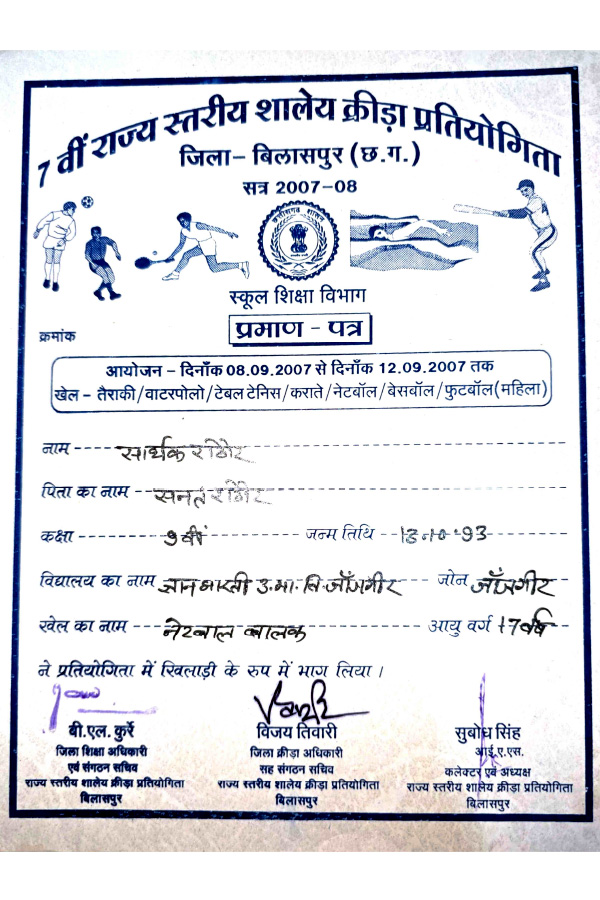 7 वीं राज्य स्तरीय शालेय क्रीड़ा प्रतियोगिता
जिला – बिलासपुर (छ.ग.)
सत्र 2007-08
छत्तीसगढ़ शासन
स्कूल शिक्षा विभाग
क्रमांक
प्रमाण - पत्र
आयोजन - दिनाँक 08.09.2007 से दिनाँक 12.09.2007 तक
खेल - तैराकी/वाटरपोलो/टेबल टेनिस/कराते/नेटबॉल/बेसबॉल/फुटबॉल(महिला)
नाम सार्थक राठौर
पिता का नाम सनत राठौर
कक्षा 9 वीं जन्म तिथि 13.10.'93
विद्यालय का नाम ज्ञान भारती उ.मा.वि. जाँजगीर जोन जाँजगीर
खेल का नाम नेटबाल बालक आयु वर्ग 17 वर्ष
ने प्रतियोगिता में खिलाड़ी के रुप में भाग लिया ।
बी.एल. कुर्रे विजय तिवारी सुबोध सिंह
जिला शिक्षा अधिकारी जिला क्रीडा अधिकारी आई.ए.एस.
एवं संगठन सचिव सह संगठन सचिव कलेक्टर एवं अध्यक्ष
राज्य स्तरीय शालेय क्रीड़ा प्रतियोगिता राज्य स्तरीय शालेय क्रीड़ा प्रतियोगिता राज्य स्तरीय शालेय क्रीड़ा प्रतियोगिता
बिलासपुर बिलासपुर बिलासपुर